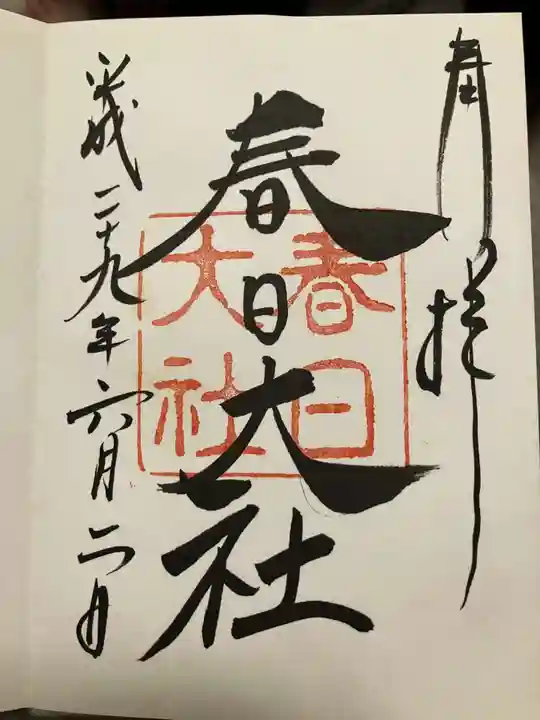 奉拝
春日大社
春日大社
平成二十九年六月二日